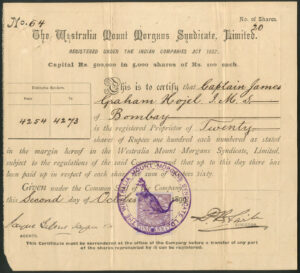 No. 64
No. of Shares.
20
The Westralia Mount Morgans Syndicate, Limited.
REGISTERED UNDER THE INDIAN COMPANIES ACT 1882.
Capital Rs. 500,000 in 5,000 shares of Rs. 100 each.
This is to certify that Captain James
Graham Hojel I.M.S.
of Bombay
4254 4273
is the registered Proprietor of Twenty
shares of Rupees one hundred each numbered as stated
in the margin hereof in the Westralia Mount Morgans Syndicate, Limited,
subject to the regulations of the said Company and that up to this day there has
been paid up in respect of each share the sum of Rupees sixty.
Given under the Common Seal of the Company
this Second day of
AGENTS.
This Certificate must be surrendered at the office of the Company before a transfer of any part
of the shares represented by it can be registered.